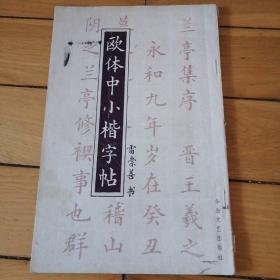 欧体中小楷字帖
雷崇善 书
兰亭集序 晋王羲之
永和九年岁在癸丑
稽山
阴之兰亭修禊事也群